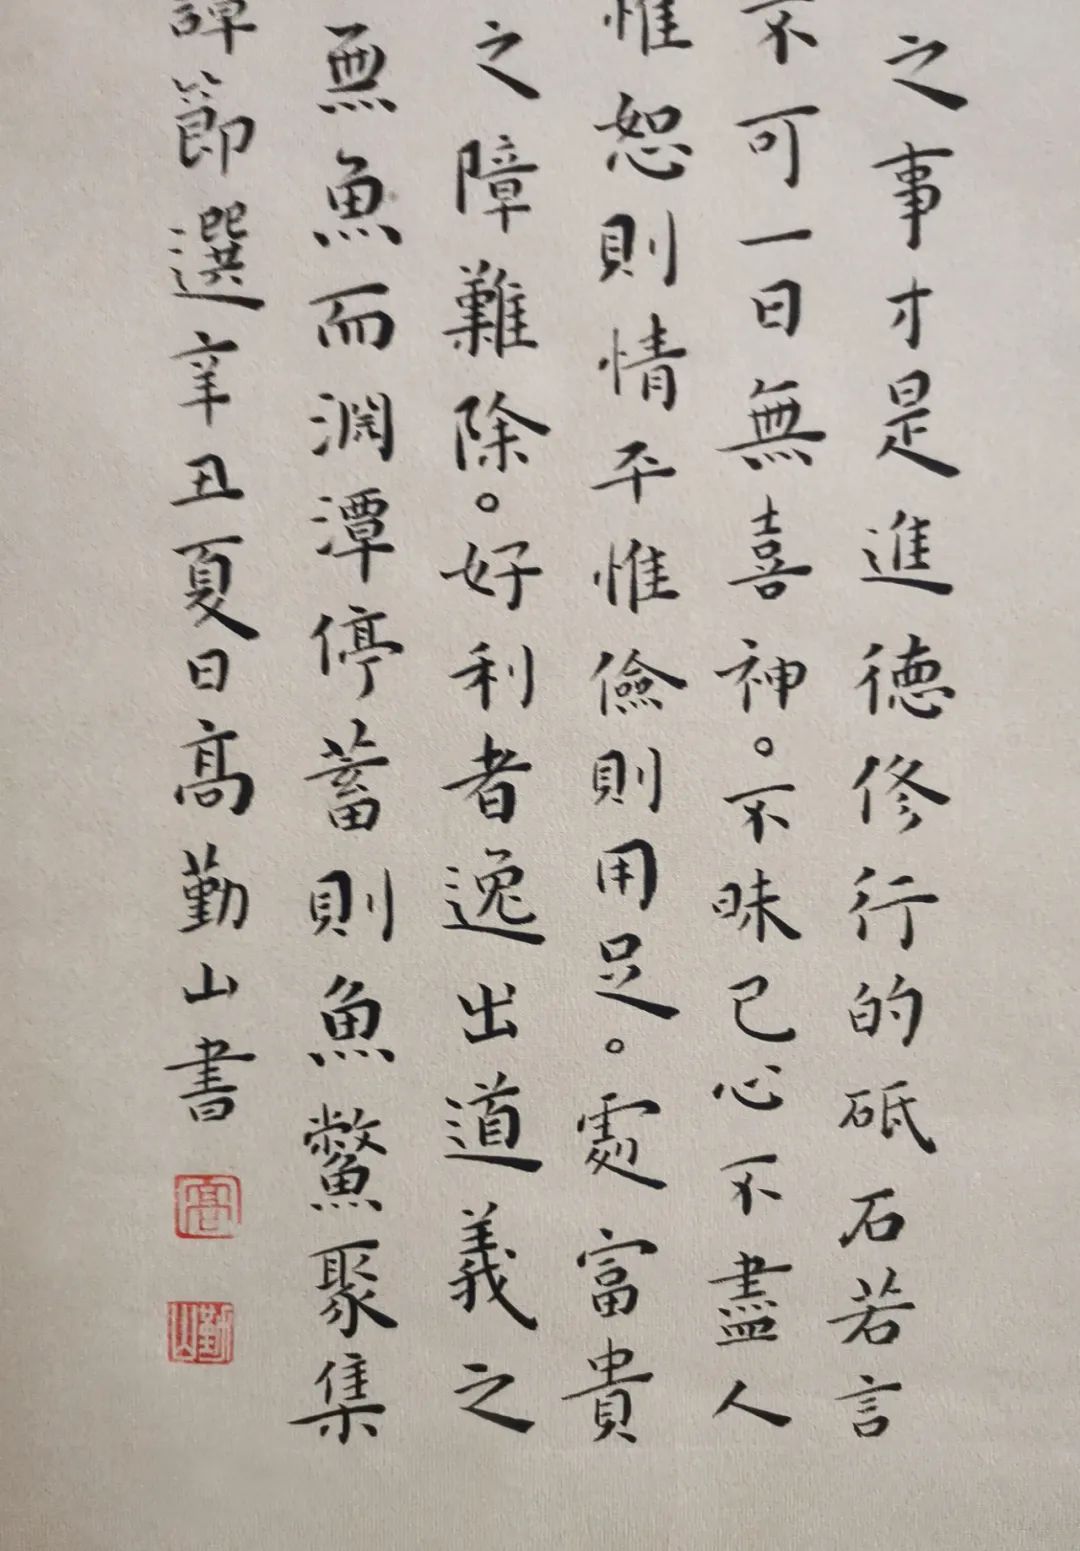 之事才是進德修行的砥石若言
不可一日無喜神。不昧己心不盡人
惟恕則情平惟惟儉則用足。處富貴
之障難除。好利者逸出道義之
無魚而淵潭停蓄則魚鱉聚集
譚節選辛丑夏日高勤山書
高
勤山